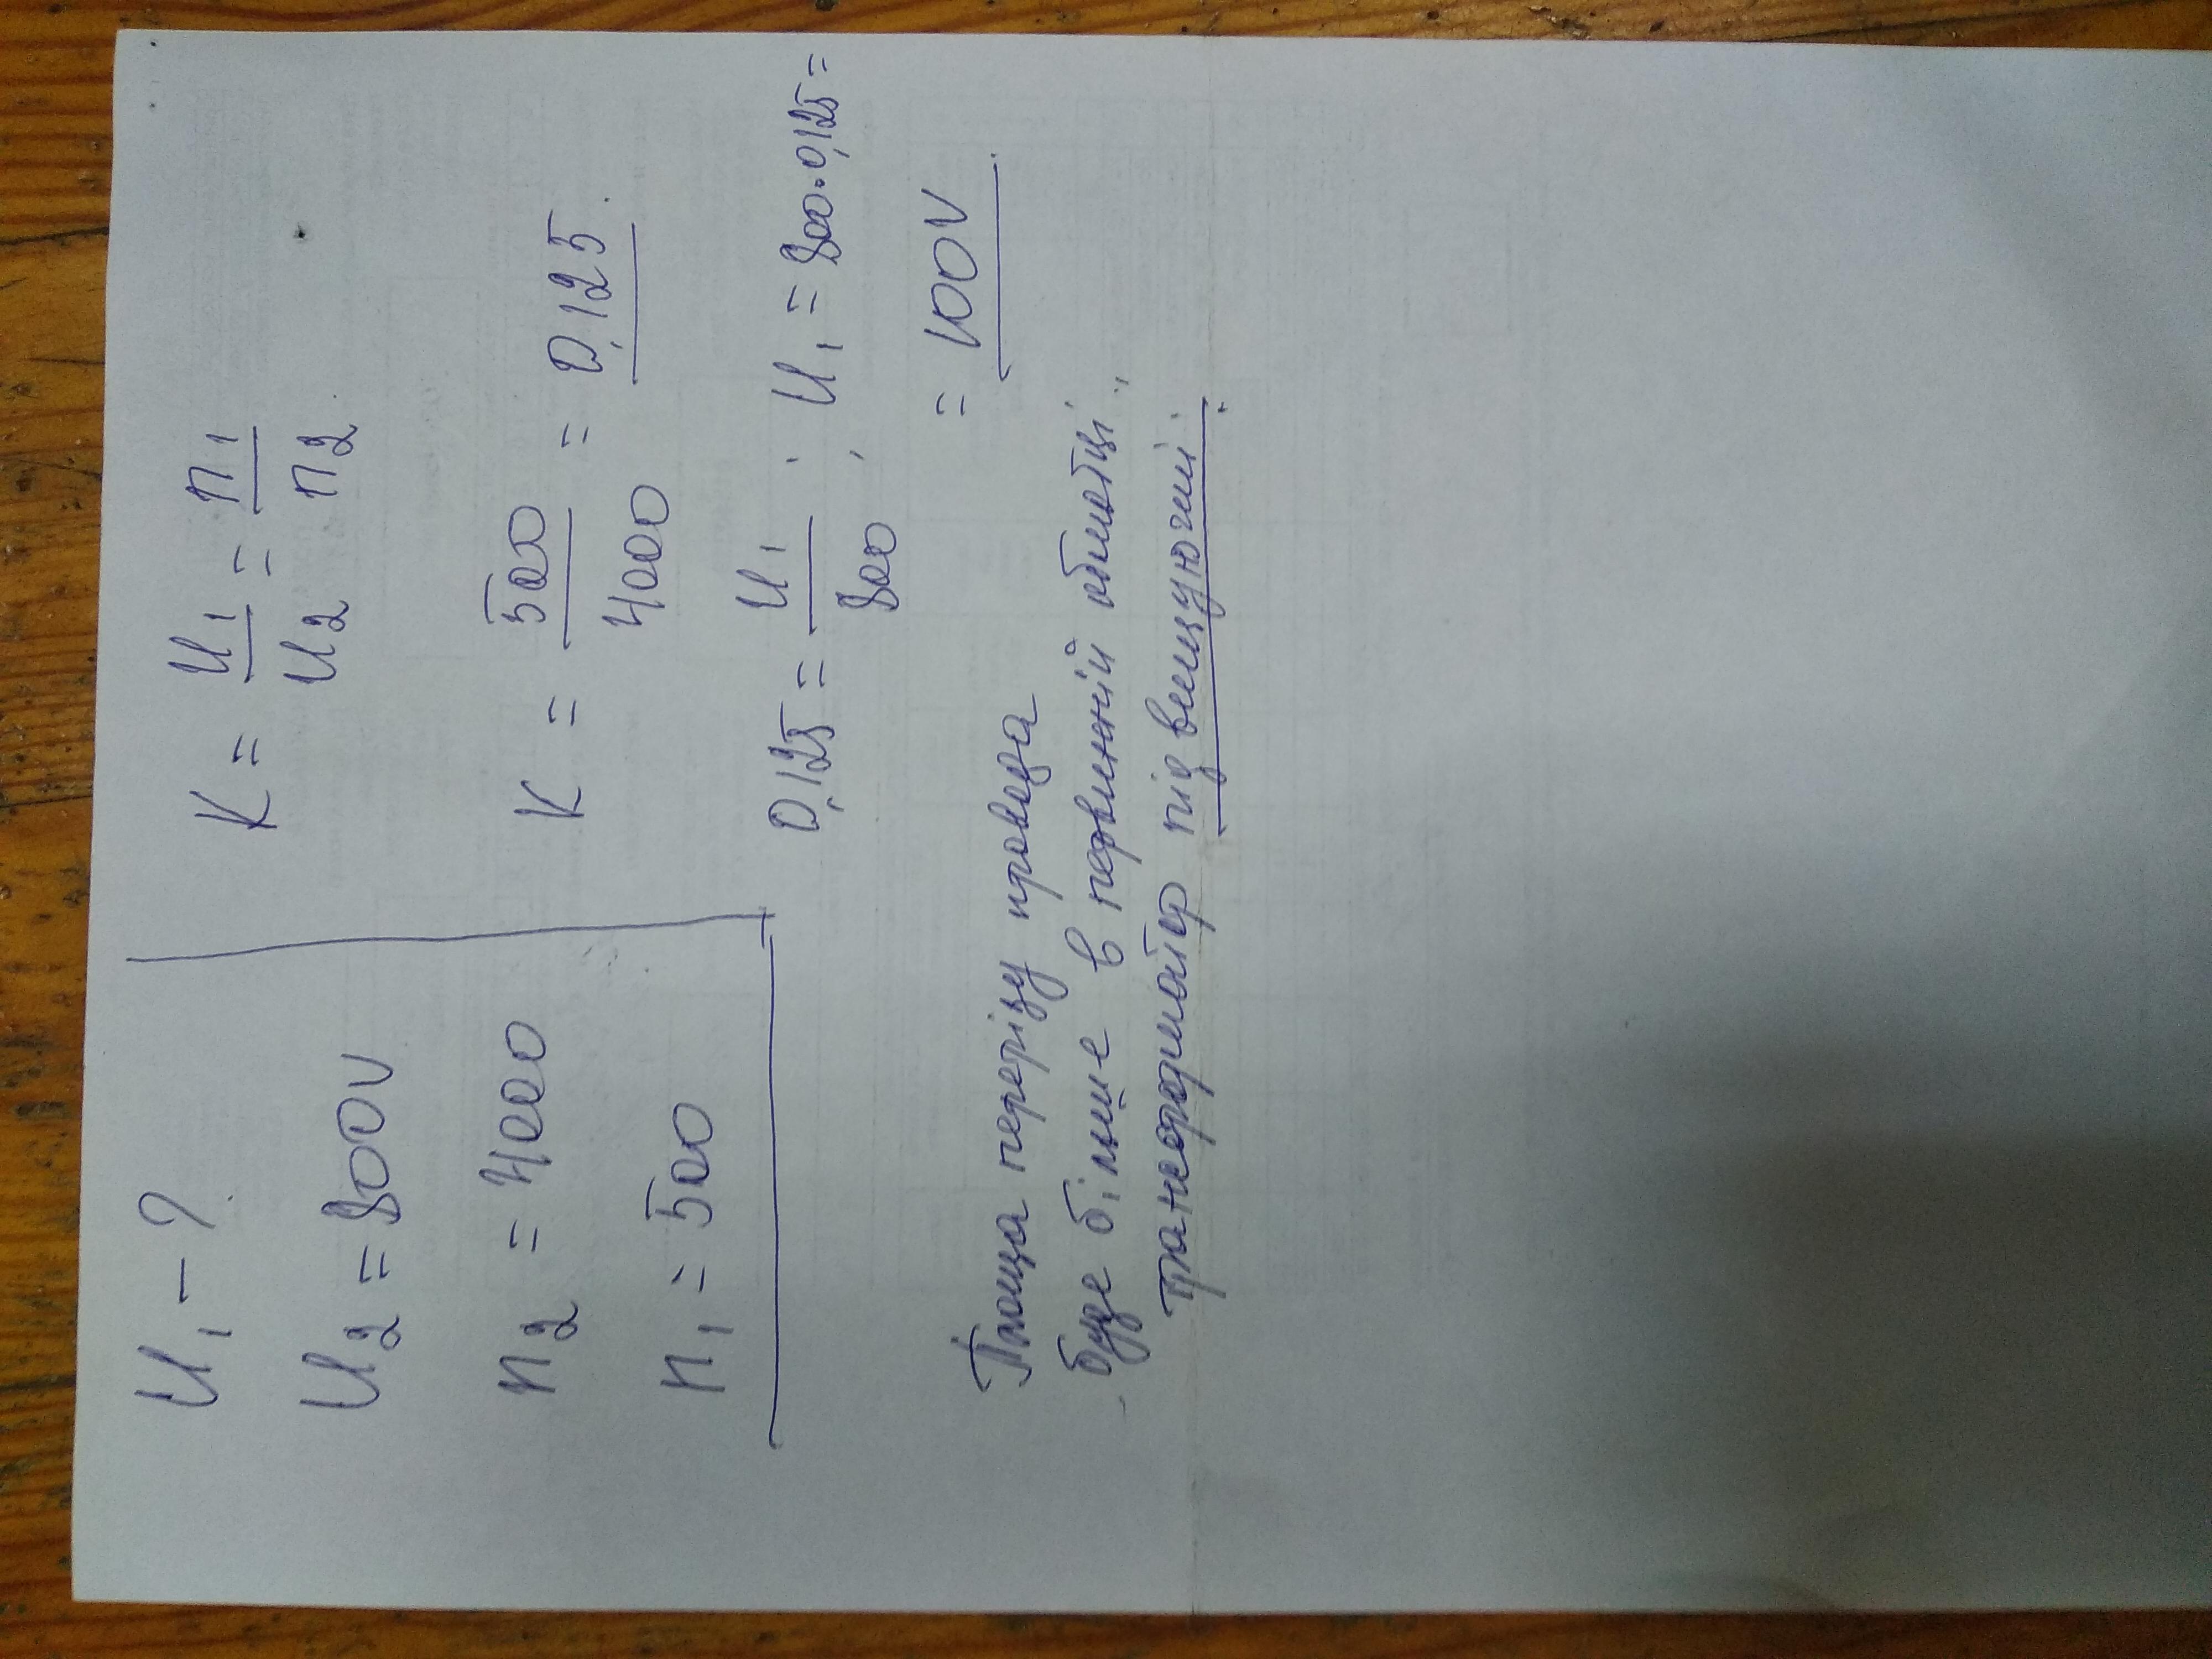 U₁ - ?
U₂ = 800V
n₂ = 4000
n₁ = 500
K = U₁/U₂ = n₁/n₂
K = 500/4000 = 0,125
0,125 = U₁/800 ; U₁ = 800·0,125 =
= 100V
Площа перерізу провода
буде більше в первинній обмотці.
трансформатор підвищуючий.